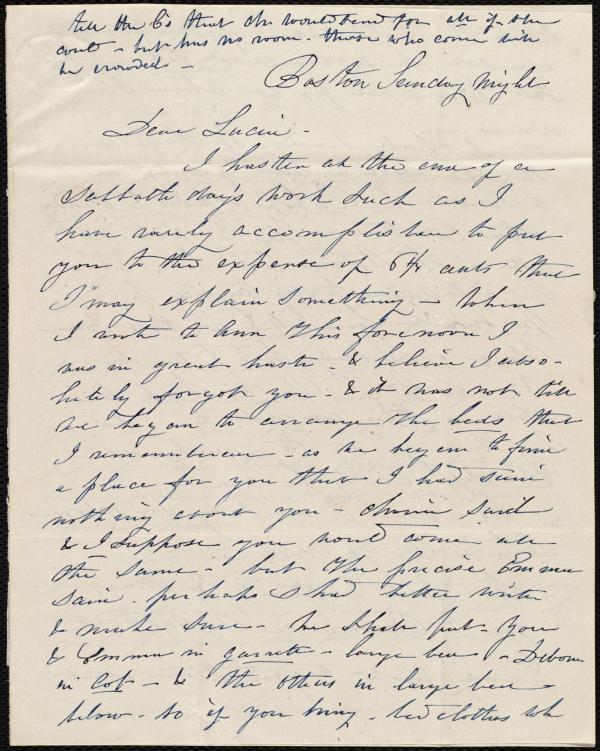 tell the C's that she would send for all if she
could - but has no room. those who come will
be crowded -
Boston Sunday night
Dear Lucia -
I hasten at the end of a
Sabbath day's work such as I
have rarely accomplished to put
you to the expense of 6 1/4 cents that
I may explain something - when
I wrote to Ann this forenoon I
was in great haste - & believe I abso-
lutely forgot you - & it was not till
we began to arrange the beds that
I remembered - as we began to find
a place for you that I had said
nothing about you - said
& I suppose you would come all
the same - but the precise Emma
said perhaps I had better write
& make sure - we shall put you
& Emma in garrett - large bed - Debora
in Cot - & the others in large bed
below. So if you bring bed clothes wh